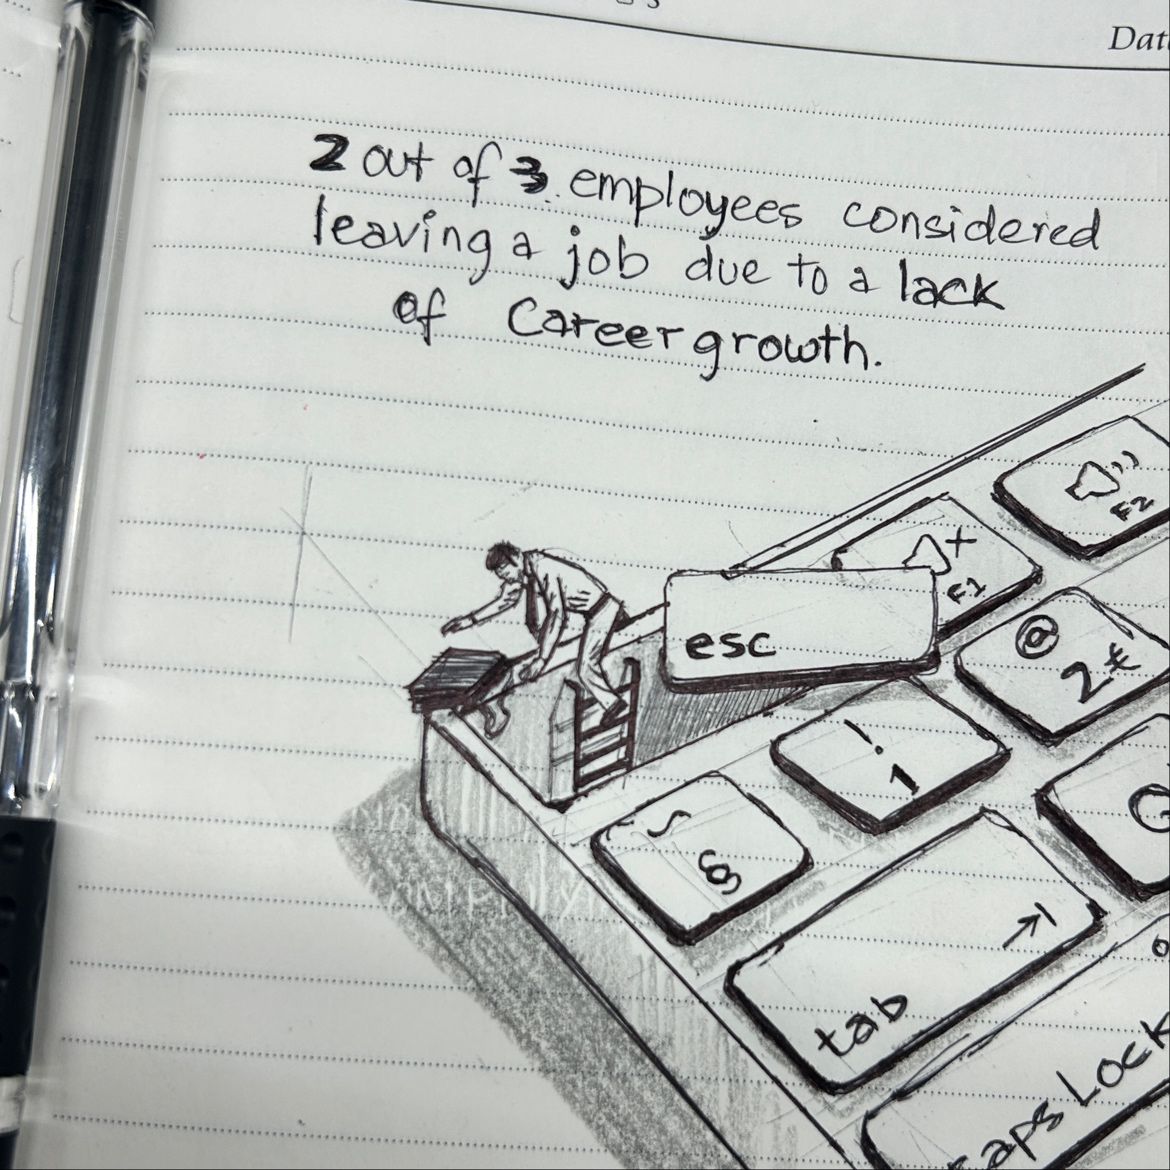 Dat
2 out of 3 employees considered
leaving a job due to a lack
of Career growth.
F2
F1
esc
@
2 €
!
1
§
tab
aps Lock